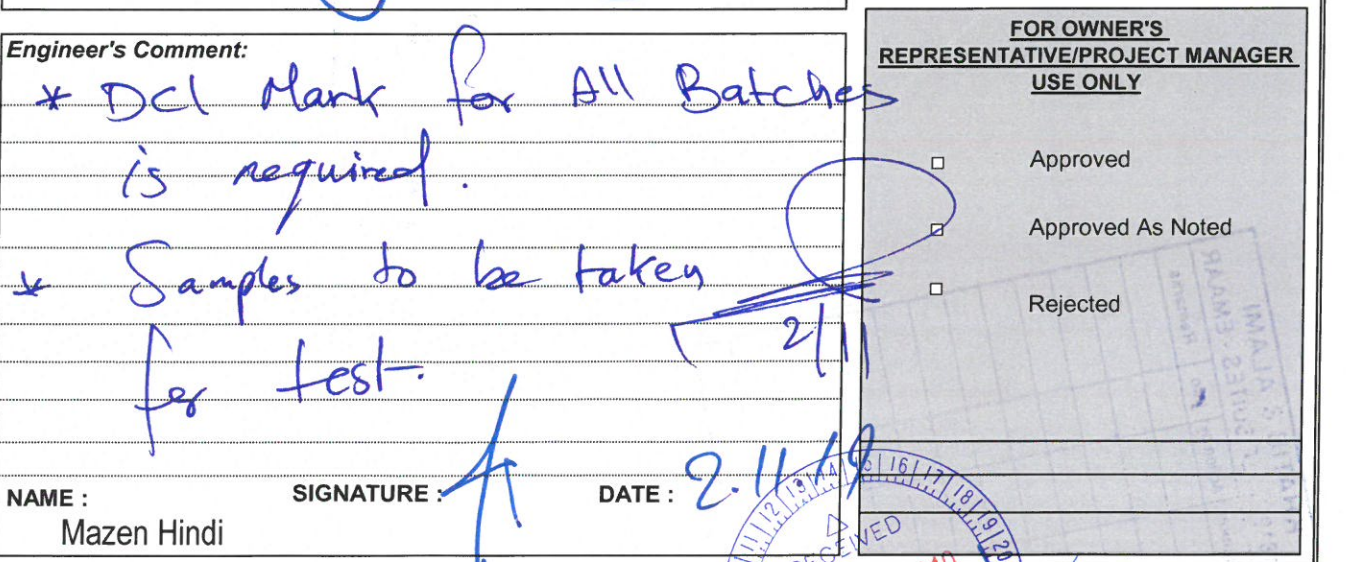 Engineer's Comment:
* DCl Mark for All Batches
is required.
* Samples to be taken
for test.
2/11
NAME :
Mazen Hindi
SIGNATURE :
DATE : 2.11.19
FOR OWNER'S
REPRESENTATIVE/PROJECT MANAGER
USE ONLY
Approved
Approved As Noted
Rejected
11 12 13 14 15 16 17 18 19 20
RECEIVED